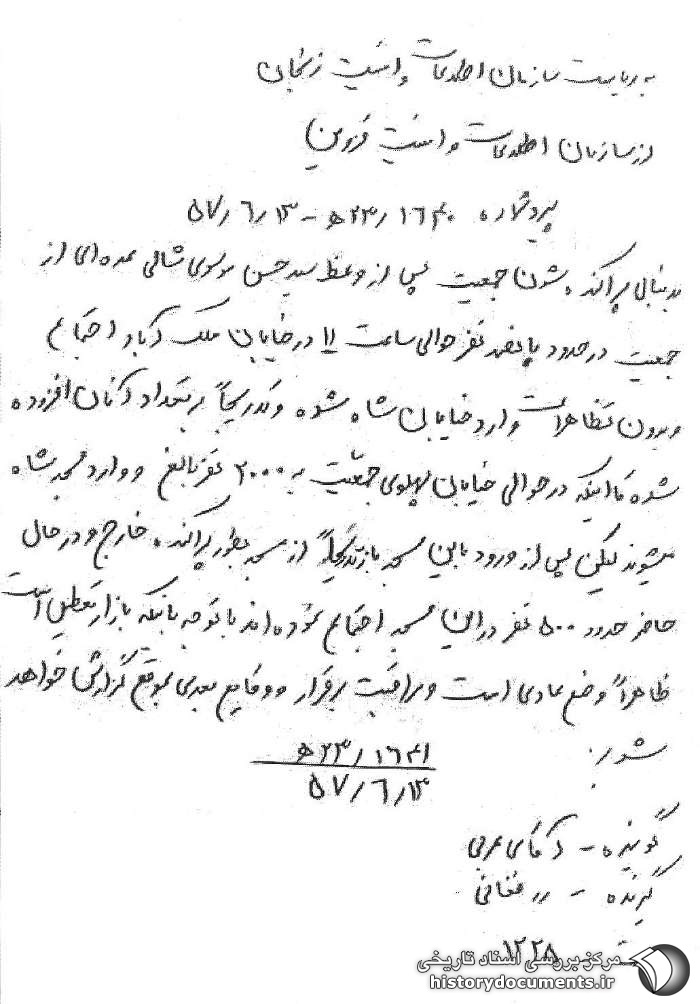 به ریاست سازمان اطلاعات و امنیت زنجان
از سازمان اطلاعات و امنیت قزوین
پیرو شماره ۱۶۴۰/۲۳ه‍ - ۵۷/۶/۱۳
بدنبال پراکنده شدن جمعیت پس از وعظ سید حسن موسوی شالی عده‌ای از
جمعیت در حدود پانصد نفر حوالی ساعت ۱۱ در خیابان ملک آباد اجتماع
و بدون تظاهرات وارد خیابان شاه شده و تدریجاً بر تعداد آنان افزوده
شده تا اینکه در حوالی خیابان پهلوی جمعیت به ۲۰۰۰ نفر بالغ و وارد مسجد شاه
میشوند لیکن پس از ورود باین مسجد باز تدریجاً از مسجد بطور پراکنده خارج و در حال
حاضر حدود ۵۰۰ نفر در این مسجد اجتماع نموده‌اند با توجه باینکه بازار تعطیل است
ظاهراً وضع عادی است و مراقبت برقرار و وقایع بعدی بموقع گزارش خواهد
شد.
۱۶۴۱/۲۳ه‍
۵۷/۶/۱۳
گوینده - آقای عربی
گیرنده - " فغانی
۱۲۲۸
مرکز بررسی اسناد تاریخی
historydocuments.ir